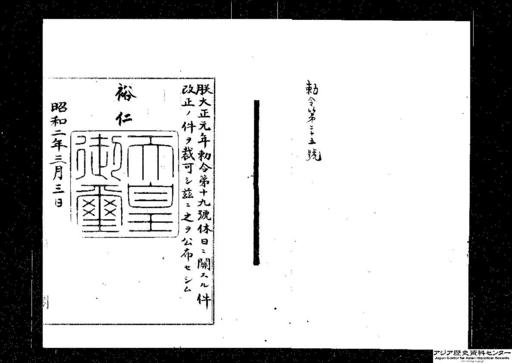 勅令第二五號
朕大正元年勅令第十九號休日ニ關スル件
改正ノ件ヲ裁可シ茲ニ之ヲ公布セシム
裕仁
天皇
御璽
昭和二年三月三日
アジア歴史資料センター
Japan Center for Asian Historical Records